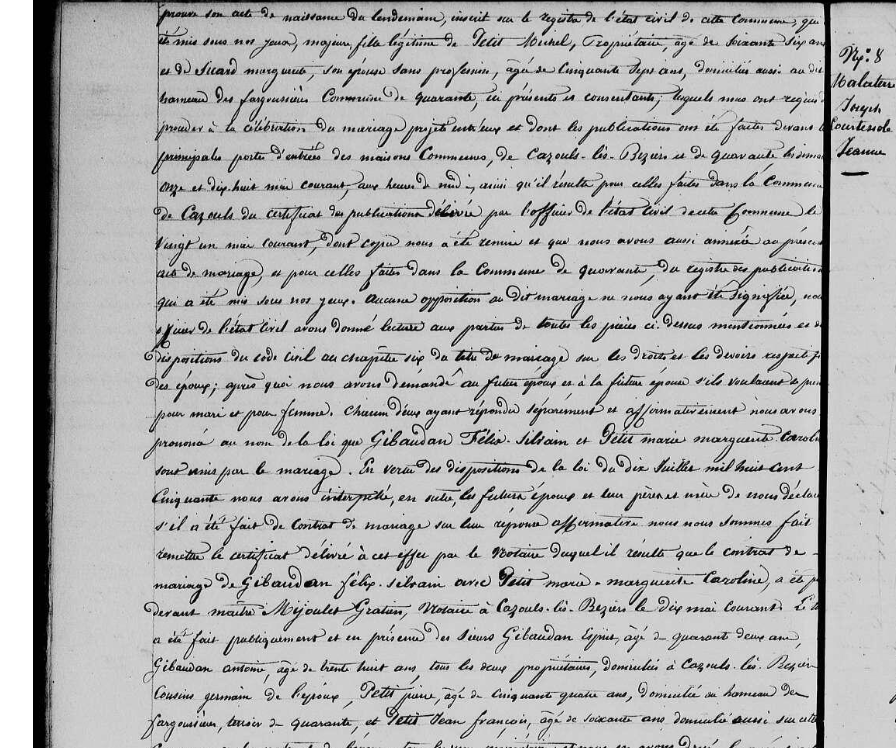 prouvé son acte de naissance du lendemain, inscrit sur le registre de l'état civil de cette Commune, qui
été mis sous nos yeux, majeure, fille légitime de Petit Michel, Propriétaire, âgé de soixante six ans
et de Sicard marguerite, son épouse sans profession, âgée de Cinquante sept ans, domiciliés aussi au dit
hameau des fargoussières Commune de quarante, ici présents et consentants; lesquels nous ont requis
procéder à la célébration du mariage projeté entr'eux et dont les publications ont été faites devant
principales portes d'entrées des maisons Communes, de Cazouls-lès-Beziers et de quarante les
onze et dix huit mai courant, aux heures de midi, ainsi qu'il résulte pour celles faites dans la Commune
de Cazouls du certificat des publications délivrée par l'officier de l'état civil de cette Commune le
Vingt un mai courant, dont copie nous a été remise et que nous avons aussi annexée au présent
acte de mariage, et pour celles faites dans la Commune de quarante, du registre des publications
qui a été mis sous nos yeux. aucune opposition au dit mariage ne nous ayant été signifiée, nous
officier de l'état civil avons donné lecture aux parties de toutes les pièces ci-dessus mentionnées et
dispositions du code civil au chapitre six du titre du mariage sur les droits et les devoirs respectifs
des époux; après quoi nous avons demandé au futur époux et à la future épouse s'ils voulaient se
pour mari et pour femme. Chacun d'eux ayant répondu séparément et affirmativement nous avons
prononcé au nom de la loi que Gibaudan Félix-Silvain et Petit marie marguerite Caroline
sont unis par le mariage. En vertu des dispositions de la loi du dix Juillet mil huit cent
Cinquante nous avons interpellé, en outre, les futurs époux et leur père et mère de nous déclarer
s'il a été fait de Contrat de mariage sur leur réponse affirmative nous nous sommes fait
remettre le certificat délivré à cet effet par le Notaire duquel il résulte que le contrat de -
mariage de Gibaudan félix-silvain avec Petit marie-marguerite Caroline, a été
devant maître Mijoulet Gratien, Notaire à Cazouls-lès-Beziers le dix mai courant.
a été fait publiquement et en présence des sieurs Gibaudan Esprit, âgé de quarant deux ans,
Gibaudan antoine, âgé de trente huit ans tous les deux propriétaires, domiciliés à Cazouls-lès-Beziers
Cousins germain de l'époux, Petit pierre, âgé de Cinquante quatre ans, domicilié au hameau des
fargoussières, terroir de quarante, et Petit Jean françois, âgé de soixante ans domicilié aussi
No. 8
Malaterre
Joseph
Jeanne